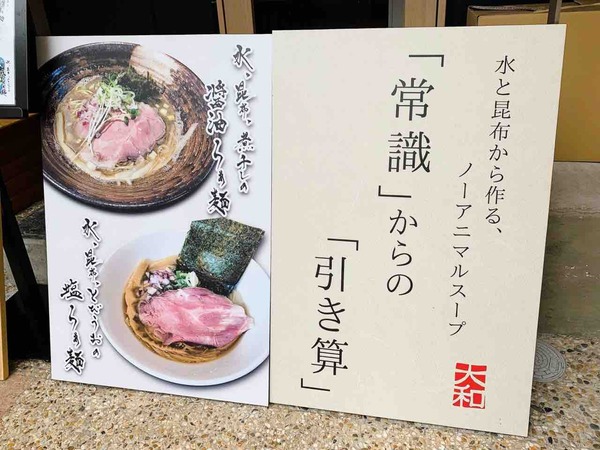 水、昆布、煮干しの
醤油らぁ麺
水、昆布、とびうおの
塩らぁ麺
水と昆布から作る、
ノーアニマルスープ
「常識」からの
「引き算」
大和